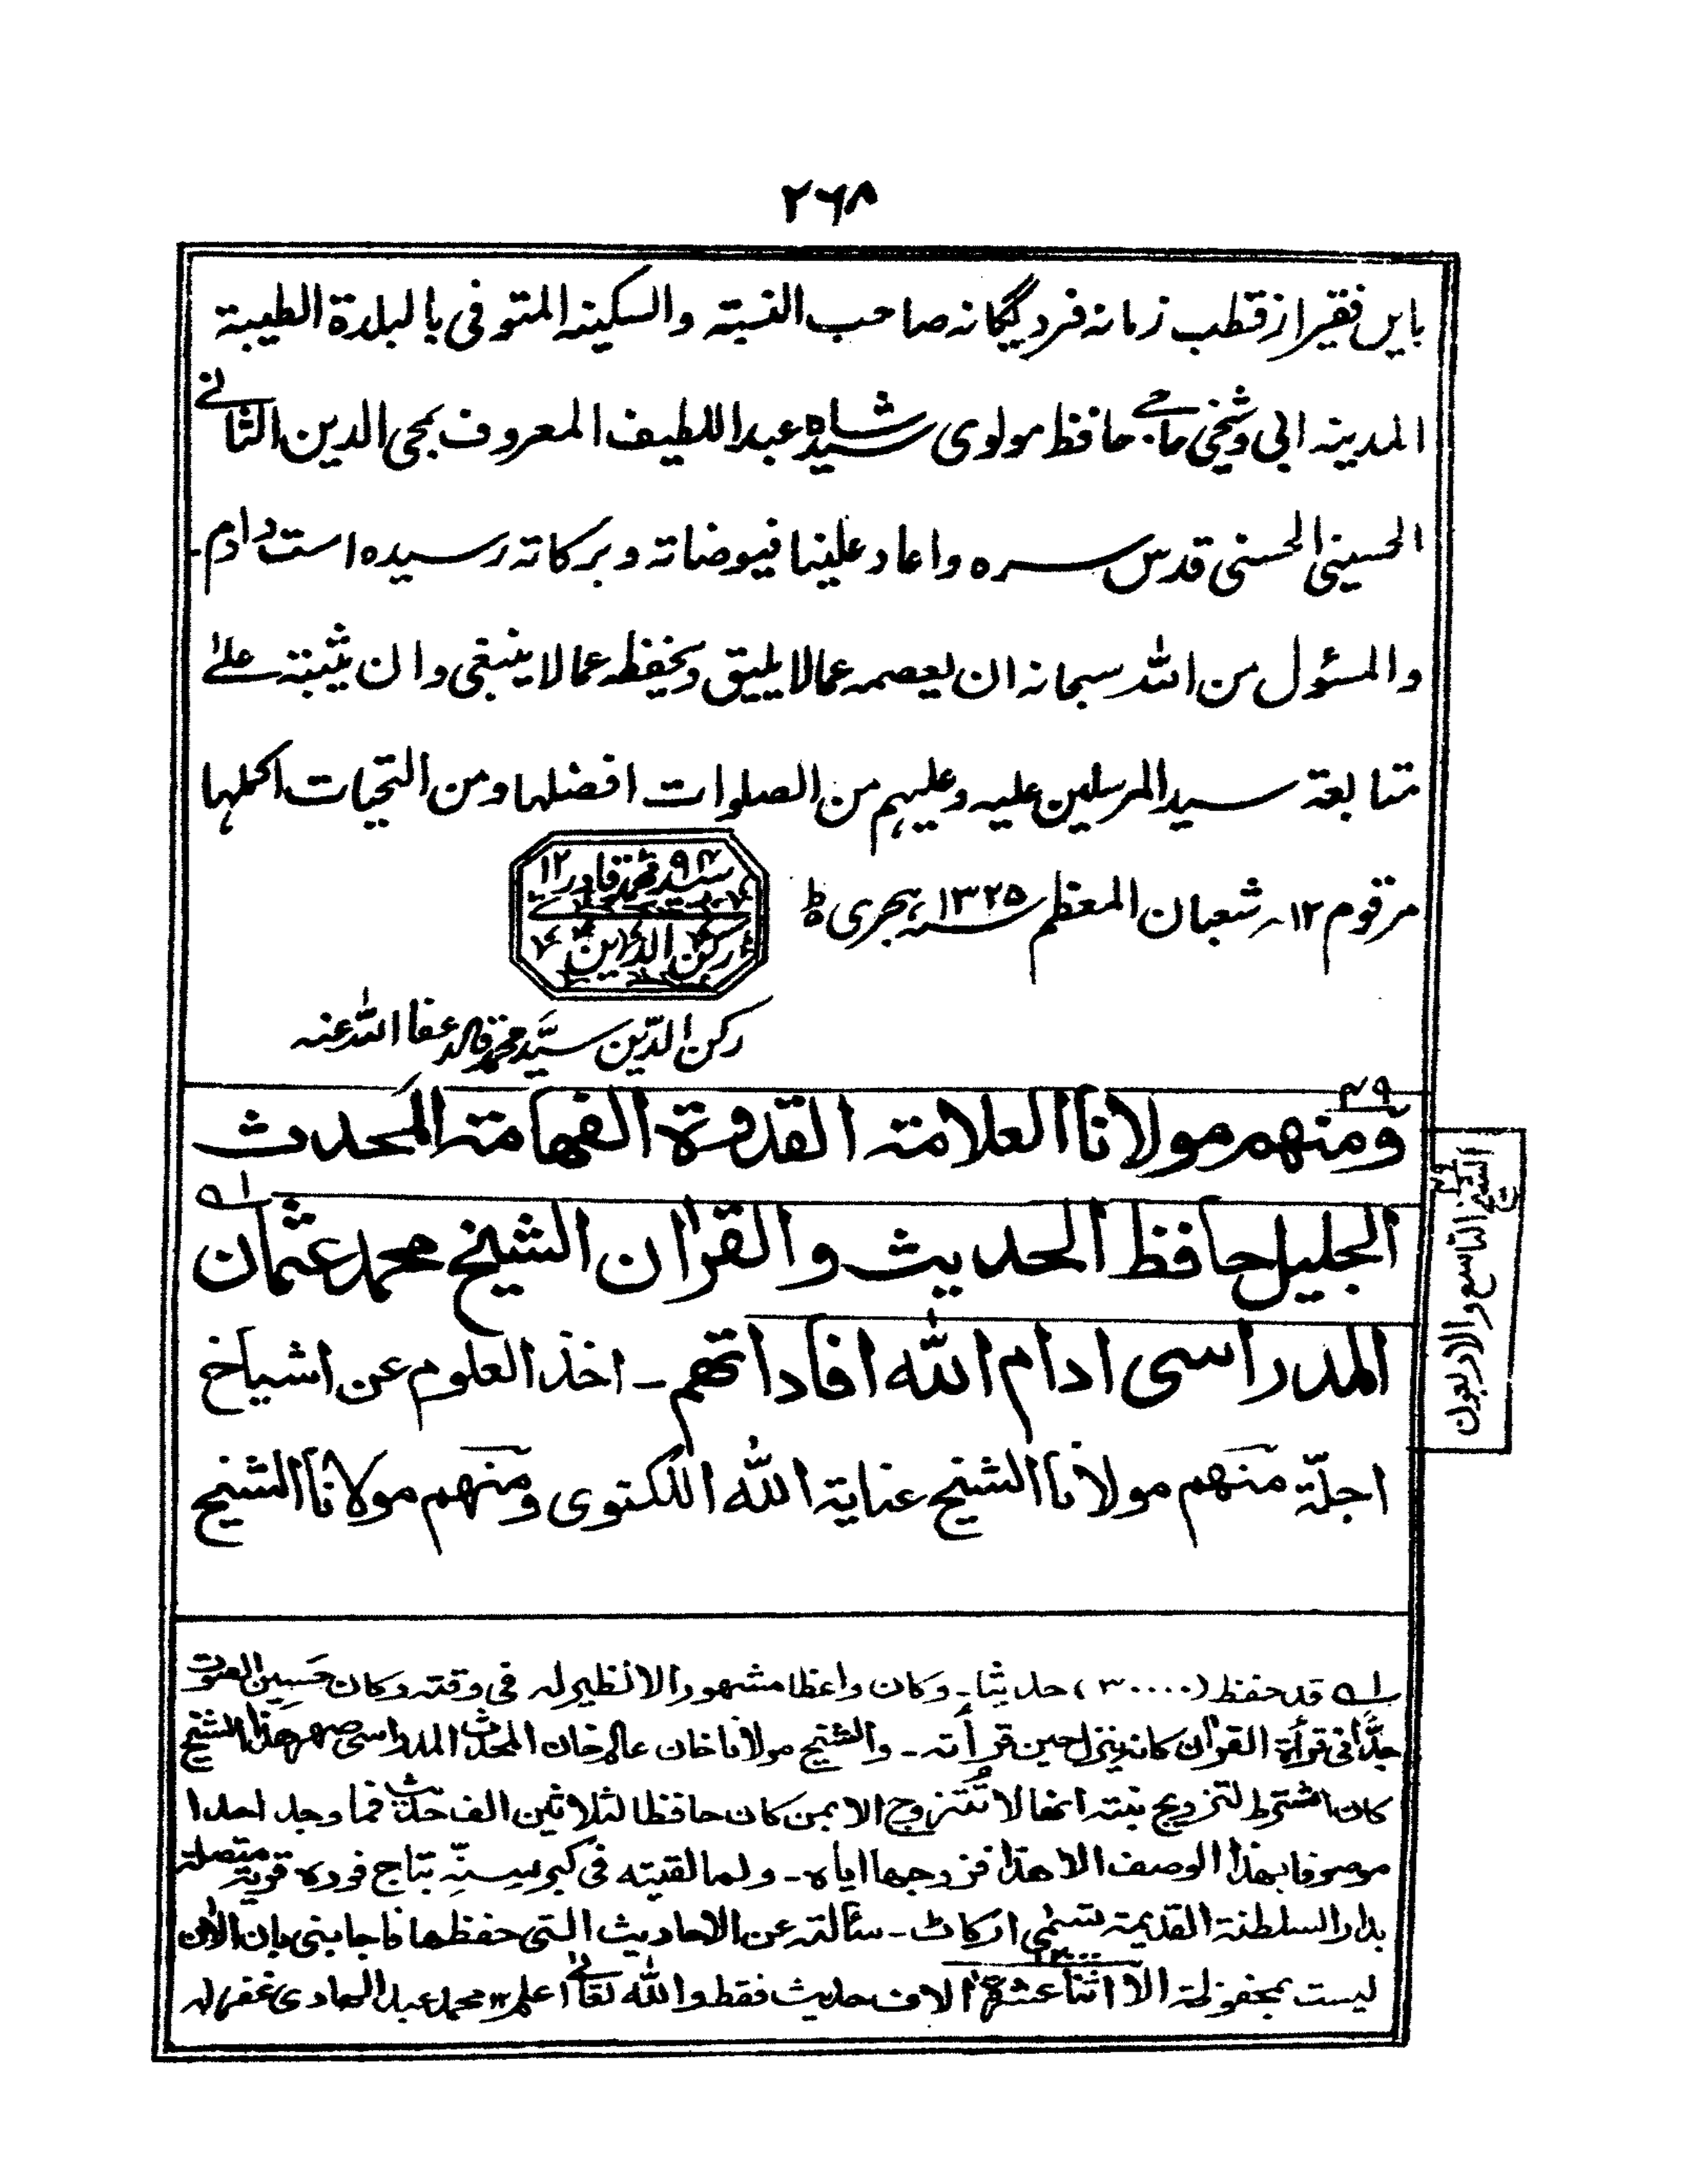 ۲۶۸
بایں فقیر از قطب زمانہ فرد یگانہ صاحب النسبتہ والسکینہ المتوفی بالبلدة الطیبة
المدینہ ابی وشیخی حاجی حافظ مولوی سید شاہ عبداللطیف المعروف بمحی الدین الثانی
الحسینی الحسنی قدس سرہ واعاد علینا فیوضاتہ وبرکاتہ رسیدہ است دادم۔
والمسئول من اللہ سبحانہ ان یعصمہ عمالا یلیق ویحفظہ عمالا ینبغی وان یثبتہ علیٰ
متابعة سید المرسلین علیہ وعلیہم من الصلوات افضلہا ومن التحیات اکملہا
مرقوم ۱۲؍ شعبان المعظم سنہ ۱۳۲۵ ہجری
سید محمد قادر
رکن الدین
رکن الدّین سیّد محمد قادر عفا اللہ عنہ
۴۹
ومنهم مولانا العلامة القدوة الفهامة المحدث
الجليل حافظ الحديث والقران الشيخ محمد عثمان
المدراسى ادام الله افاداتهم ـ اخذ العلوم عن اشياخ
اجلّة منهم مولانا الشيخ عناية الله اللكنوى ومنهم مولانا الشيخ
الشيخ التاسع والاربعون
له قد حفظ (۳۰۰۰۰) حديثا ـ وكان واعظا مشهورا لا نظير له فى وقته وكان حسين الصوت
جدًّا فى قرأة القران كانه ينزل حين قرأته ـ والشيخ مولانا خان عالم خان المحدث المدراسى صهر هذا الشيخ
كان اشترط لتزويج بنته انها لا تُتزوج الا بمن كان حافظا لثلاثين الف حديث فما وجد احدا
موصوفا بهذا الوصف الا هذا فزوجها اياه ـ ولما لقيته فى كبر سِنّه بتاج فوره قرية متصلة
بدار السلطنة القديمة تسمّى اركاٹ ـ سألته عن الاحاديث التى حفظها فاجابنى بان الأن
ليست بمحفوظة الا اثنا عشر الاف حديث فقط والله تعالىٰ اعلم ۱۲ محمد عبد الهادى غفر له